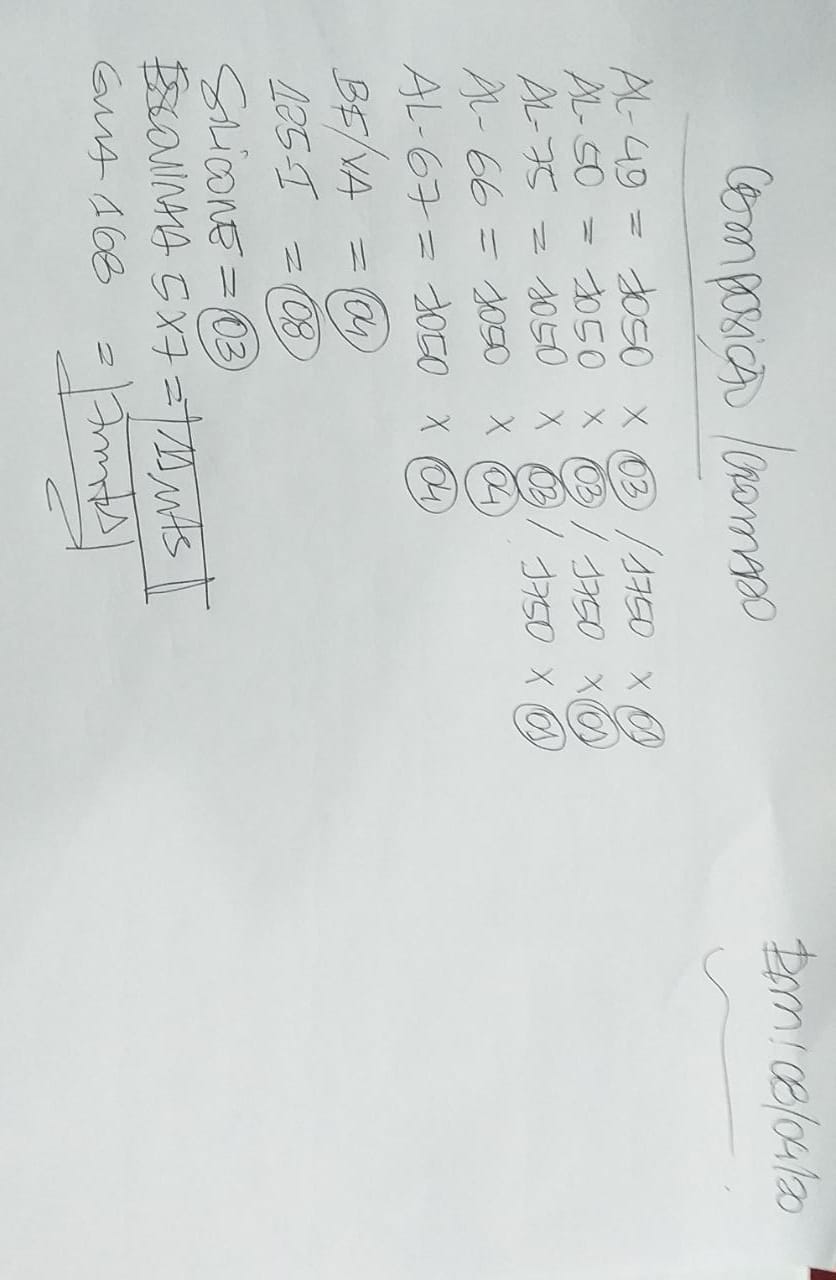 Em: 08/04/20
Composição / cromado
AL-49 = 1050 x 03 / 1750 x 01
AL-50 = 1050 x 03 / 1750 x 01
AL-75 = 1050 x 03 / 1750 x 01
AL-66 = 1050 x 04
AL-67 = 1050 x 04
BF/VA = 04
125-I = 08
Silicone = 03
Escovinha 5x7 = mts
Guia 168 = 7 mts